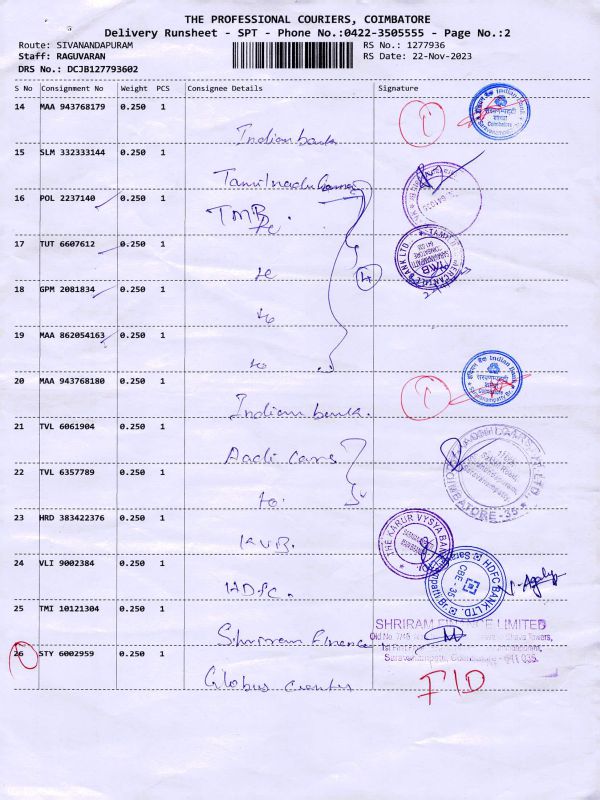 THE PROFESSIONAL COURIERS, COIMBATORE
Delivery Runsheet - SPT - Phone No.:0422-3505555 - Page No.:2
Route: SIVANANDAPURAM
RS No.: 1277936
Staff: RAGUVARAN
RS Date: 22-Nov-2023
DRS No.: DCJB127793602
S No Consignment No Weight PCS Consignee Details Signature
14 MAA 943768179 0.250 1
Indian bank
15 SLM 332333144 0.250 1
Tamilnadu
16 POL 2237140 0.250 1
TMB.
17 TUT 6607612 0.250 1
to
18 GPM 2081834 0.250 1
to
4
19 MAA 862054163 0.250 1
to
20 MAA 943768180 0.250 1
Indian bank.
21 TVL 6061904 0.250 1
Aadi cars
22 TVL 6357789 0.250 1
to
23 HRD 383422376 0.250 1
KVB.
THE KARUR VYSYA BANK
24 VLI 9002384 0.250 1
HDFC.
HDFC BANK LTD.
CBE - 35
25 TMI 10121304 0.250 1
Shriram Finance
SHRIRAM FINANCE LIMITED
Saravanampatti, Coimbatore - 641 035.
26 STY 6002959 0.250 1
Globus center
FID